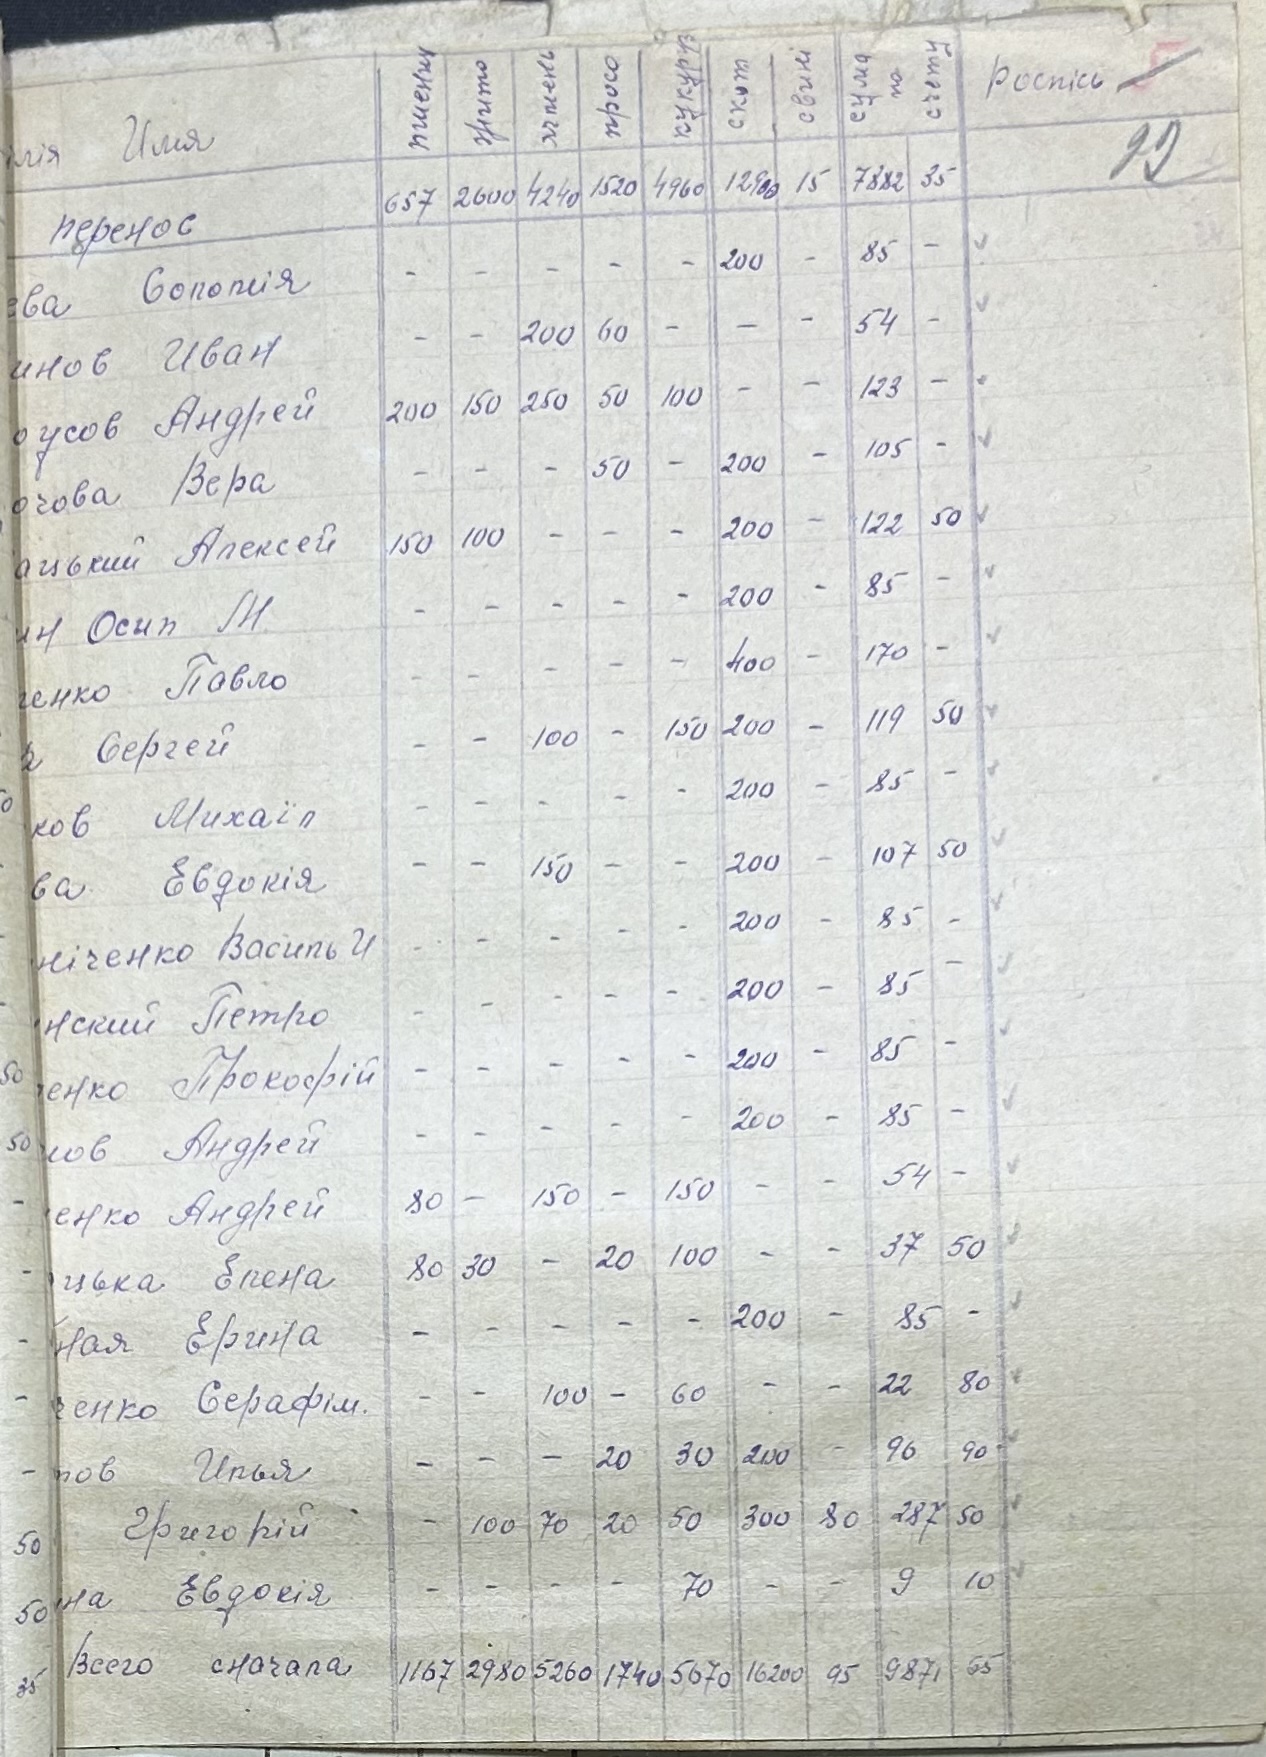 ілія Имя пшениц жито ячмень просо кукурз скот свині сума по счету роспісь
перенос 657 2600 4240 1520 4960 12900 15 7882 35
ева - - - - - 200 - 85 -
инов Иван - - 200 60 - - - 54 -
оусов Андрей 200 150 250 50 100 - - 123 -
очова Вера - - - 50 - 200 - 105 -
ацький Алексей 150 100 - - - 200 - 122 50
ин Осип М. - - - - - 200 - 85 -
ченко Павло - - - - - 400 - 170 -
Сергей - - 100 - 150 200 - 119 50
ков Михаіл - - - - - 200 - 85 -
ва Евдокія - - 150 - - 200 - 107 50
ніченко Василь И - - - - - 200 - 85 -
нский Петро - - - - - 200 - 85 -
енко Прокофій - - - - - 200 - 85 -
нов Андрей - - - - - 200 - 85 -
енко Андрей 80 - 150 - 150 - - 54 -
цька Елена 80 30 - 20 100 - - 37 50
ная Ерина - - - - - 200 - 85 -
ченко Серафім. - - 100 - 60 - - 22 80
пов Илья - - - 20 30 200 - 96 90
Григорій - 100 70 20 50 300 80 287 50
на Евдокія - - - - 70 - - 9 10
Всего сначала 1167 2980 5260 1740 5670 16200 95 9871 65